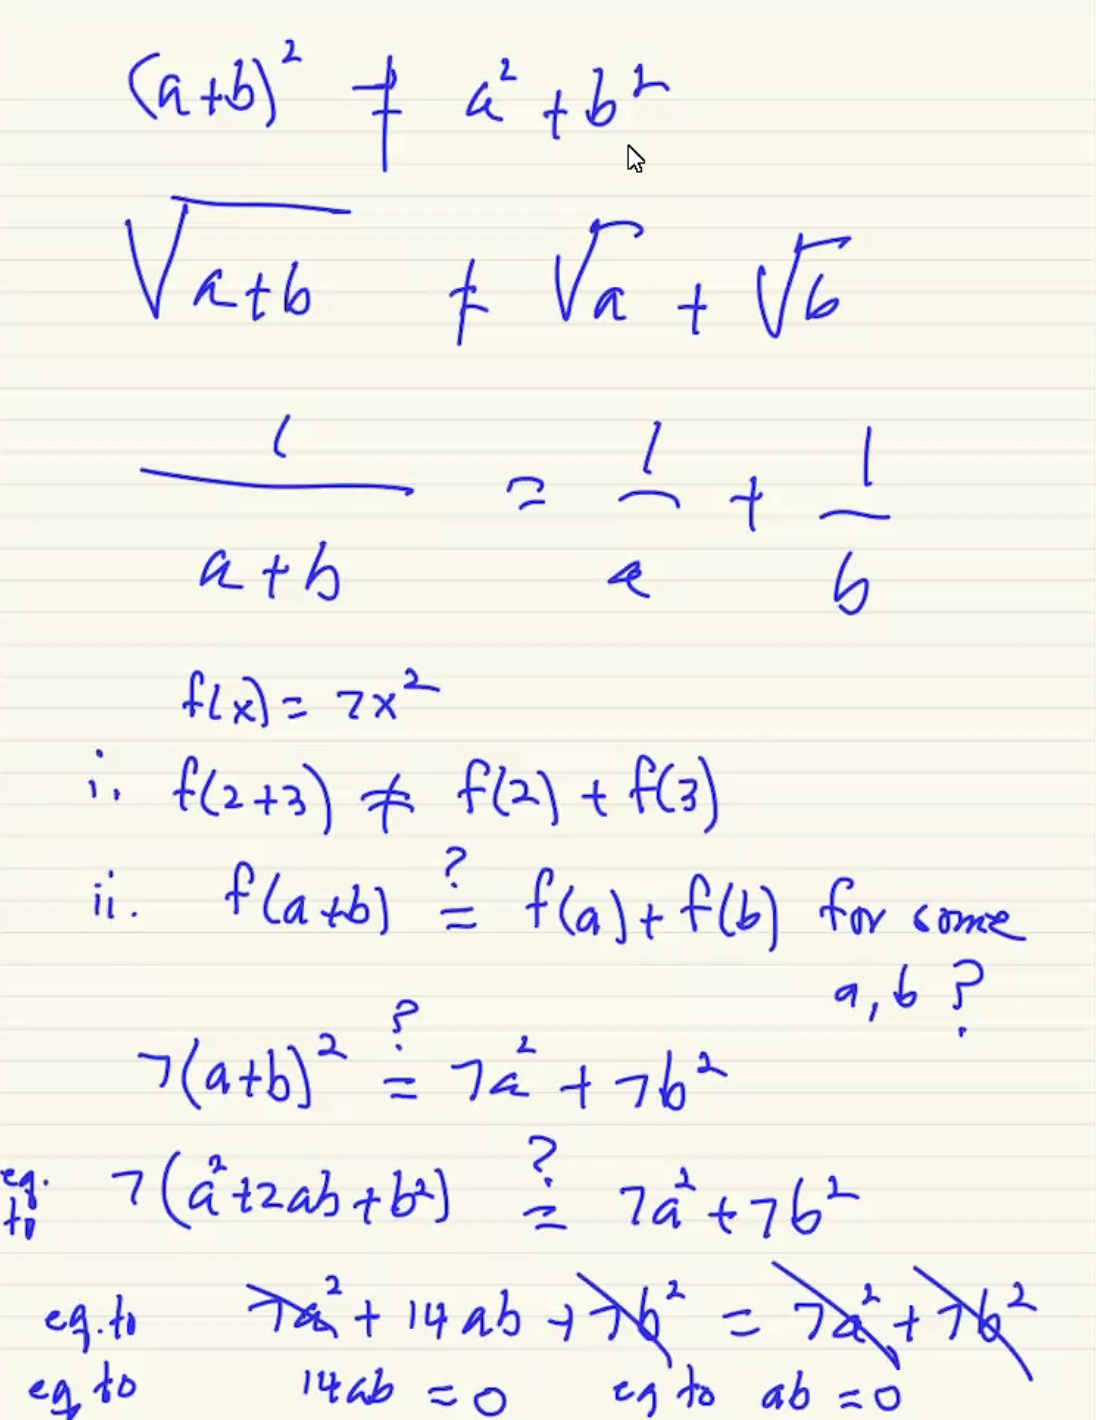 (a+b)² ≠ a² + b²
√(a+b) ≠ √a + √b
1/(a+b) = 1/a + 1/b
f(x) = 7x²
i. f(2+3) ≠ f(2) + f(3)
ii. f(a+b) ≟ f(a) + f(b) for some
a, b ?
7(a+b)² ≟ 7a² + 7b²
eq. to 7(a²+2ab+b²) ≟ 7a² + 7b²
eq. to 7a² + 14ab + 7b² = 7a² + 7b²
eq to 14ab = 0 eq to ab = 0